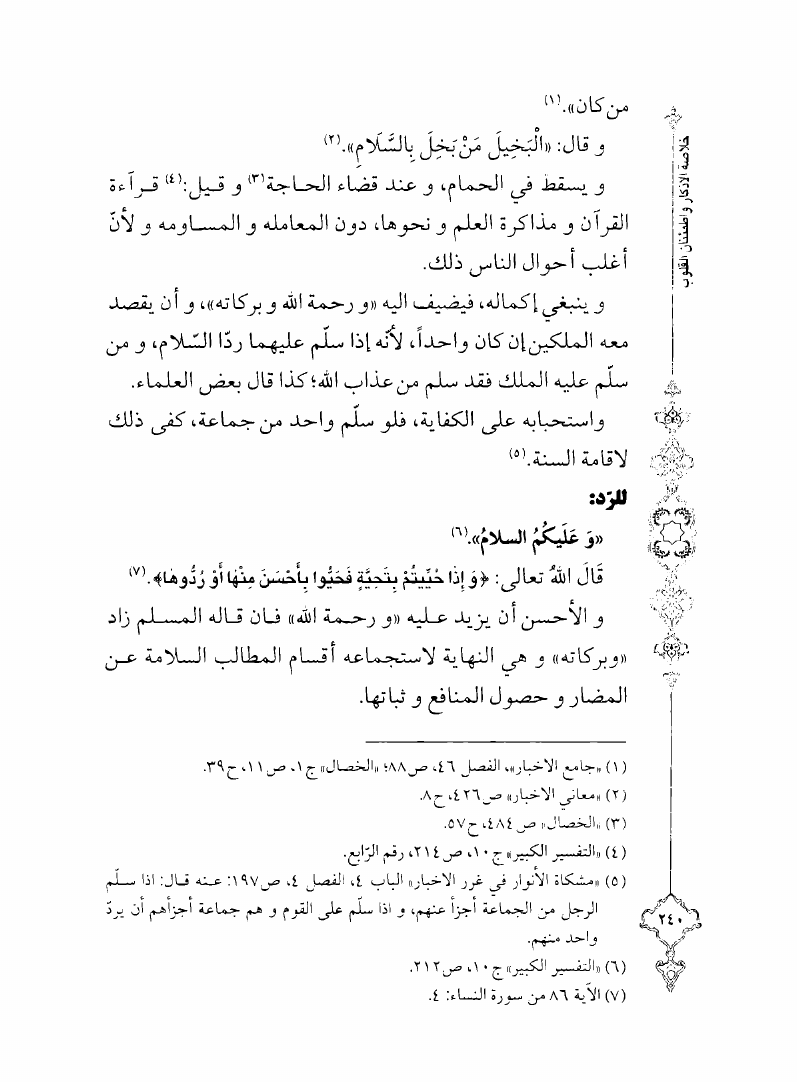 من كان».(١)
و قال: «الْبَخِيلَ مَنْ بَخِلَ بِالسَّلَامِ».(٢)
و يسقط في الحمام، و عند قضاء الحاجة(٣) و قيل:(٤) قرآءة
القرآن و مذاكرة العلم و نحوها، دون المعامله و المساومه و لأنّ
أغلب أحوال الناس ذلك.
و ينبغي إكماله، فيضيف اليه «و رحمة الله و بركاته»، و أن يقصد
معه الملكين إن كان واحداً، لأنّه إذا سلّم عليهما ردّا السّلام، و من
سلّم عليه الملك فقد سلم من عذاب الله؛ كذا قال بعض العلماء.
واستحبابه على الكفاية، فلو سلّم واحد من جماعة، كفى ذلك
لاقامة السنة.(٥)
للرّد:
«وَ عَلَيكُمُ السلامُ».(٦)
قَالَ اللهُ تعالى: ﴿وَ إِذا حُيِّيتُمْ بِتَحِيَّةٍ فَحَيُّوا بِأَحْسَنَ مِنْهٰا أَوْ رُدُّوهٰا﴾.(٧)
و الأحسن أن يزيد عليه «و رحمة الله» فان قاله المسلم زاد
«وبركاته» و هي النهاية لاستجماعه أقسام المطالب السلامة عن
المضار و حصول المنافع و ثباتها.
(١) «جامع الاخبار»، الفصل ٤٦، ص٨٨؛ «الخصال» ج١، ص١١، ح٣٩.
(٢) «معاني الاخبار» ص٤٢٦، ح٨.
(٣) «الخصال» ص٤٨٤، ح٥٧.
(٤) «التفسير الكبير» ج١٠، ص٢١٤، رقم الرّابع.
(٥) «مشكاة الأنوار في غرر الاخبار» الباب ٤، الفصل ٤، ص١٩٧: عنه قال: اذا سلّم
الرجل من الجماعة أجزأ عنهم، و اذا سلّم على القوم و هم جماعة أجزأهم أن يردّ
واحد منهم.
(٦) «التفسير الكبير» ج١٠، ص٢١٢.
(٧) الآية ٨٦ من سورة النساء: ٤.
خلاصة الاذكار و اطمئنان القلوب
٢٤٠